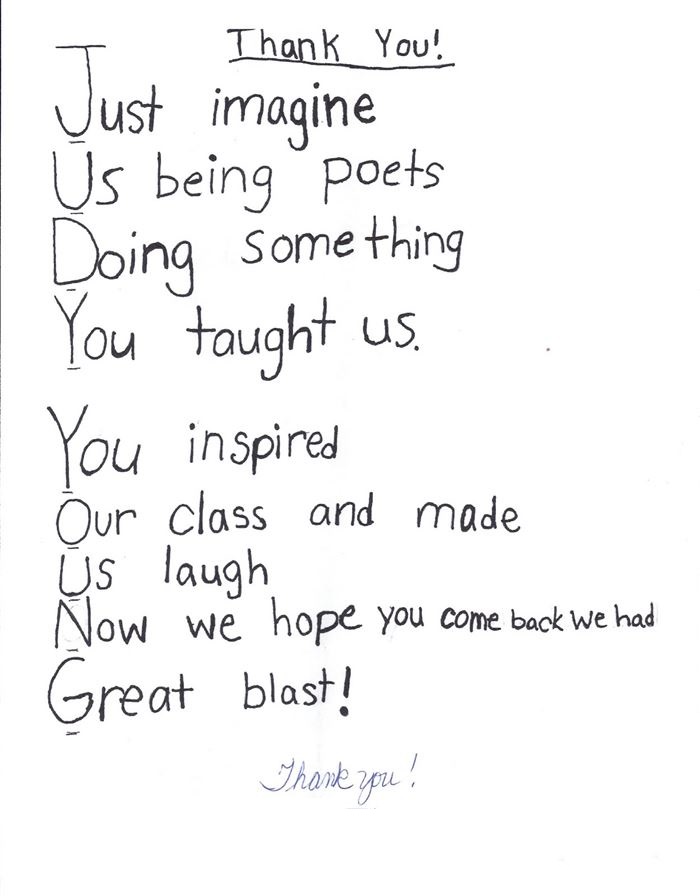 Thank You!
Just imagine
Us being poets
Doing something
You taught us.
You inspired
Our class and made
Us laugh
Now we hope you come back we had
Great blast!
Thank you!